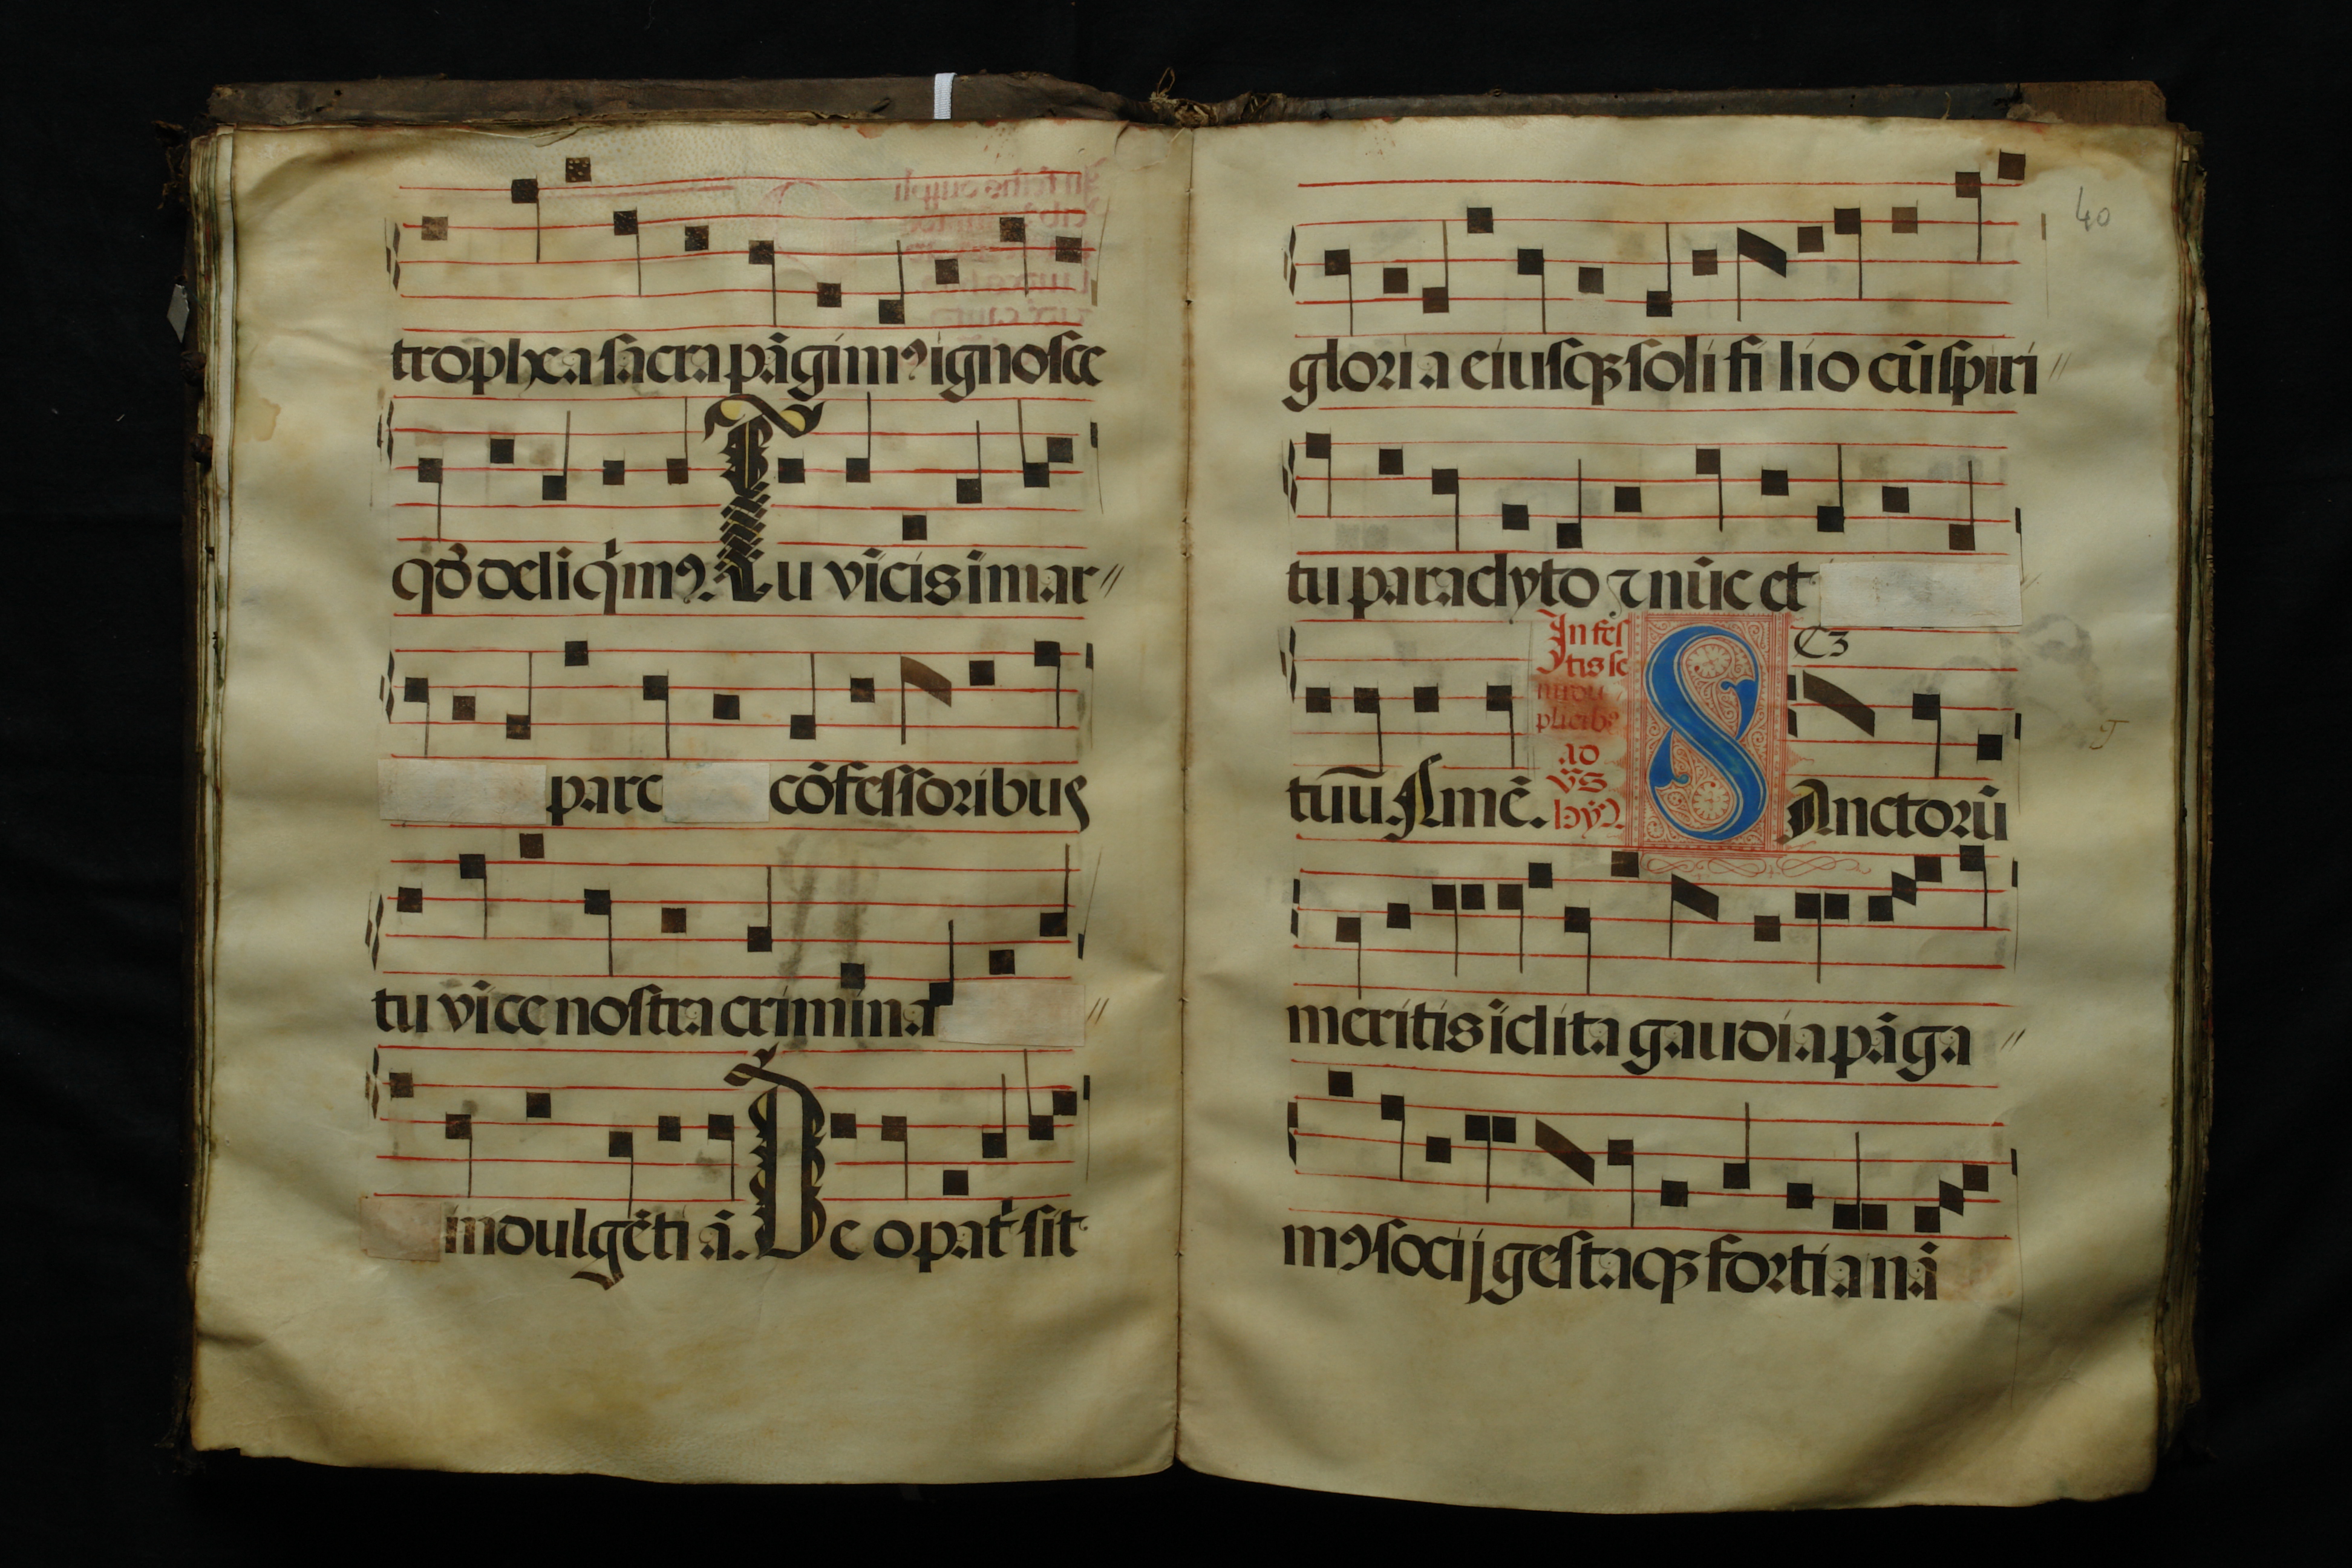 trophea sacra pāgimꝰ ignosce
qđ deliqͥmꝰ. Tu vīcis i mar//
parc cōfessoribus
tu vīce nostra crimina //
indulgēti ā. De o patͥ sit
40
gloria eiusqꝫ soli filio cū spiri//
tu paraclyto ⁊ nūc et
In fes
tis se
midu
plicibꝰ
ad
vṡ
hyꝰ
tuū. Amē. Sanctorū
meritis īclita gaudia pāga //
mꝰ socij gestaqꝫ fortia nā